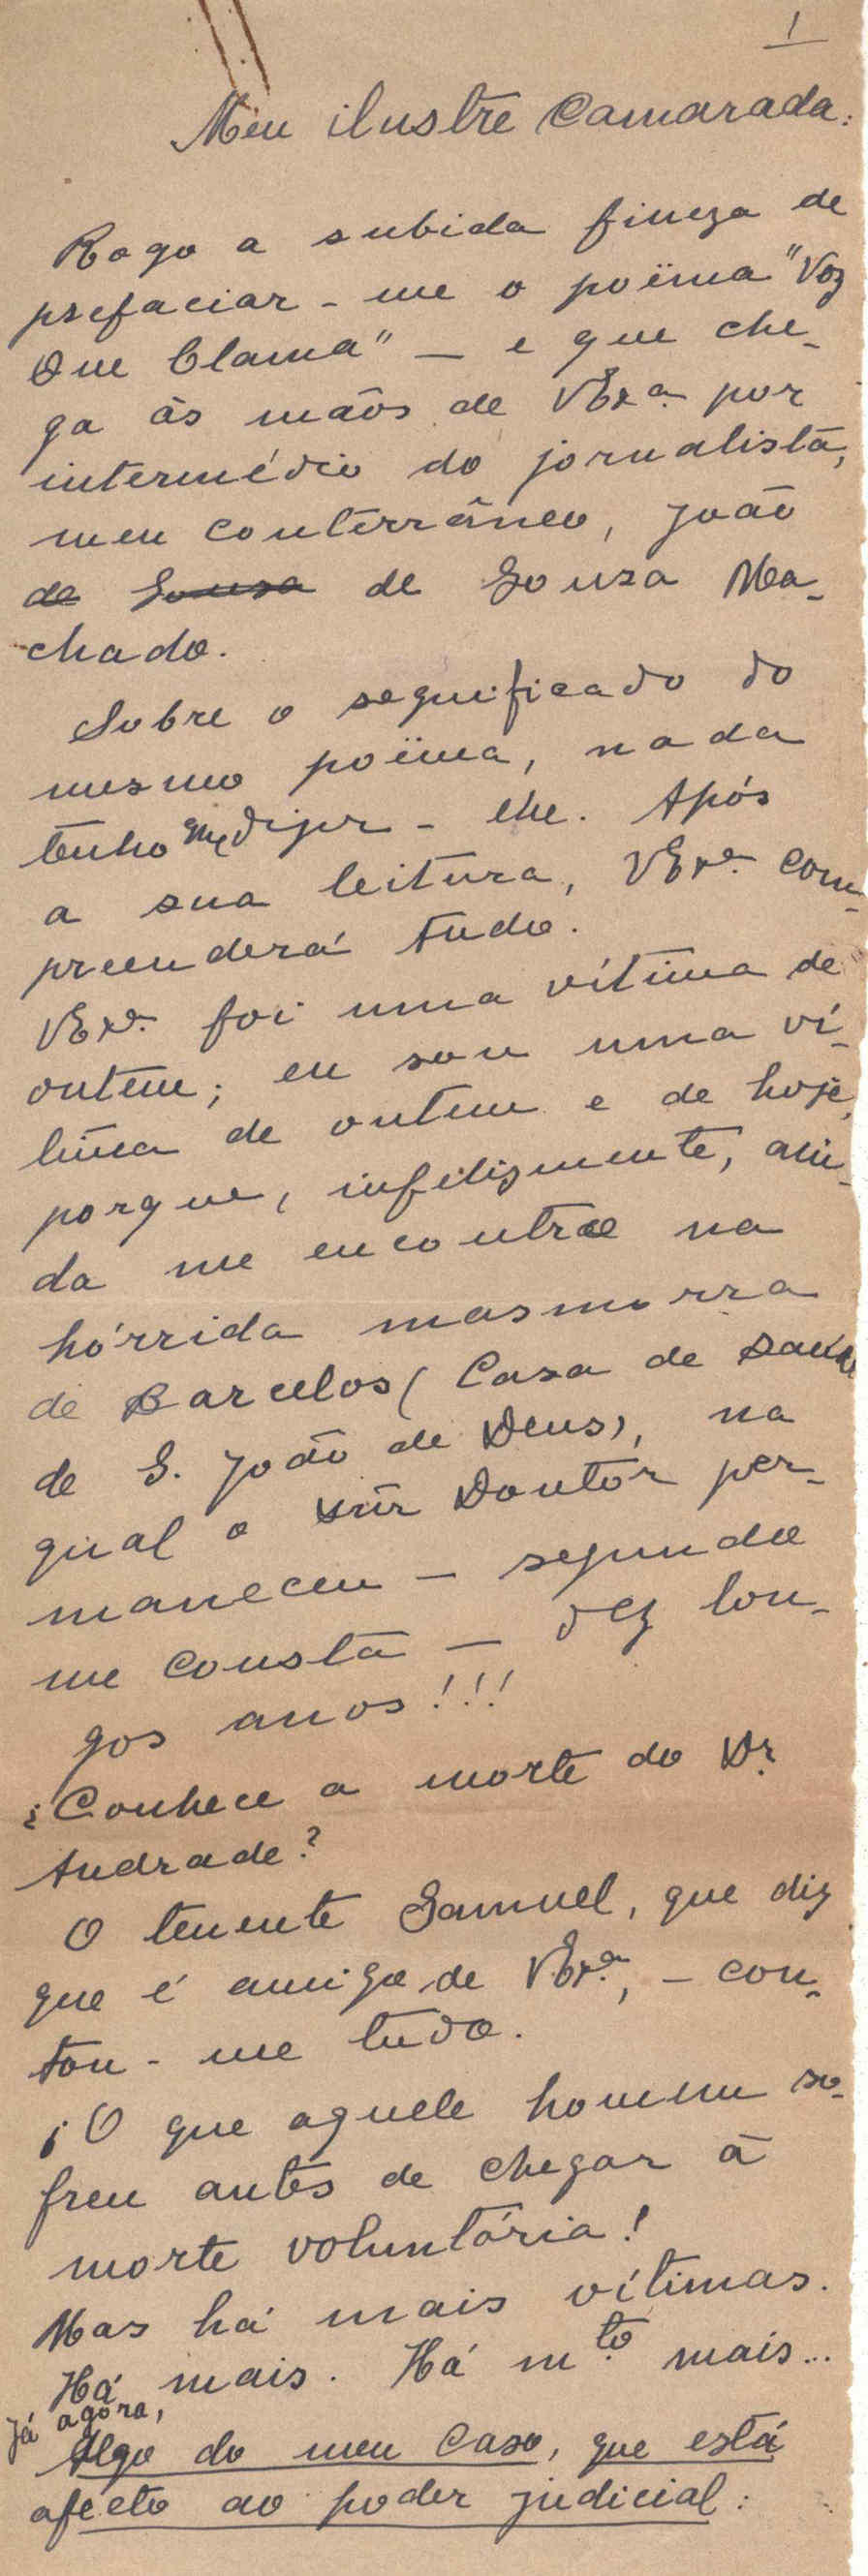 1
Meu ilustre Camarada:
Rogo a subida fineza de
prefaciar-me o poëma "Voz
Que Clama" — e que che-
ga às mãos de VExª por
intermédio do jornalista,
meu conterrâneo, João
de Sousa de Souza Ma-
chado.
Sobre o segnificado do
mesmo poëma, nada
tenho que dizer-lhe. Após
a sua leitura, VExª com-
preenderá tudo.
VExª foi uma vítima de
ontem; eu sou uma ví-
tima de ontem e de hoje,
porque, infelizmente, ain-
da me encontro na
hórrida masmorra
de Barcelos (Casa de Saude
de S. João de Deus), na
qual o snr Doutôr per-
maneceu — segundo
me consta — dez lon-
gos anos!!!
¿Conhece a morte do Dr.
Andrade?
O tenente Samuel, que diz
que é amigo de VExª, — con-
tou-me tudo.
¡O que aquele homem so-
freu antes de chegar à
morte voluntária!
Mas há mais vítimas.
Há mais. Há mto mais...
Já agora,
Algo do meu caso, que está
afecto ao poder judicial: